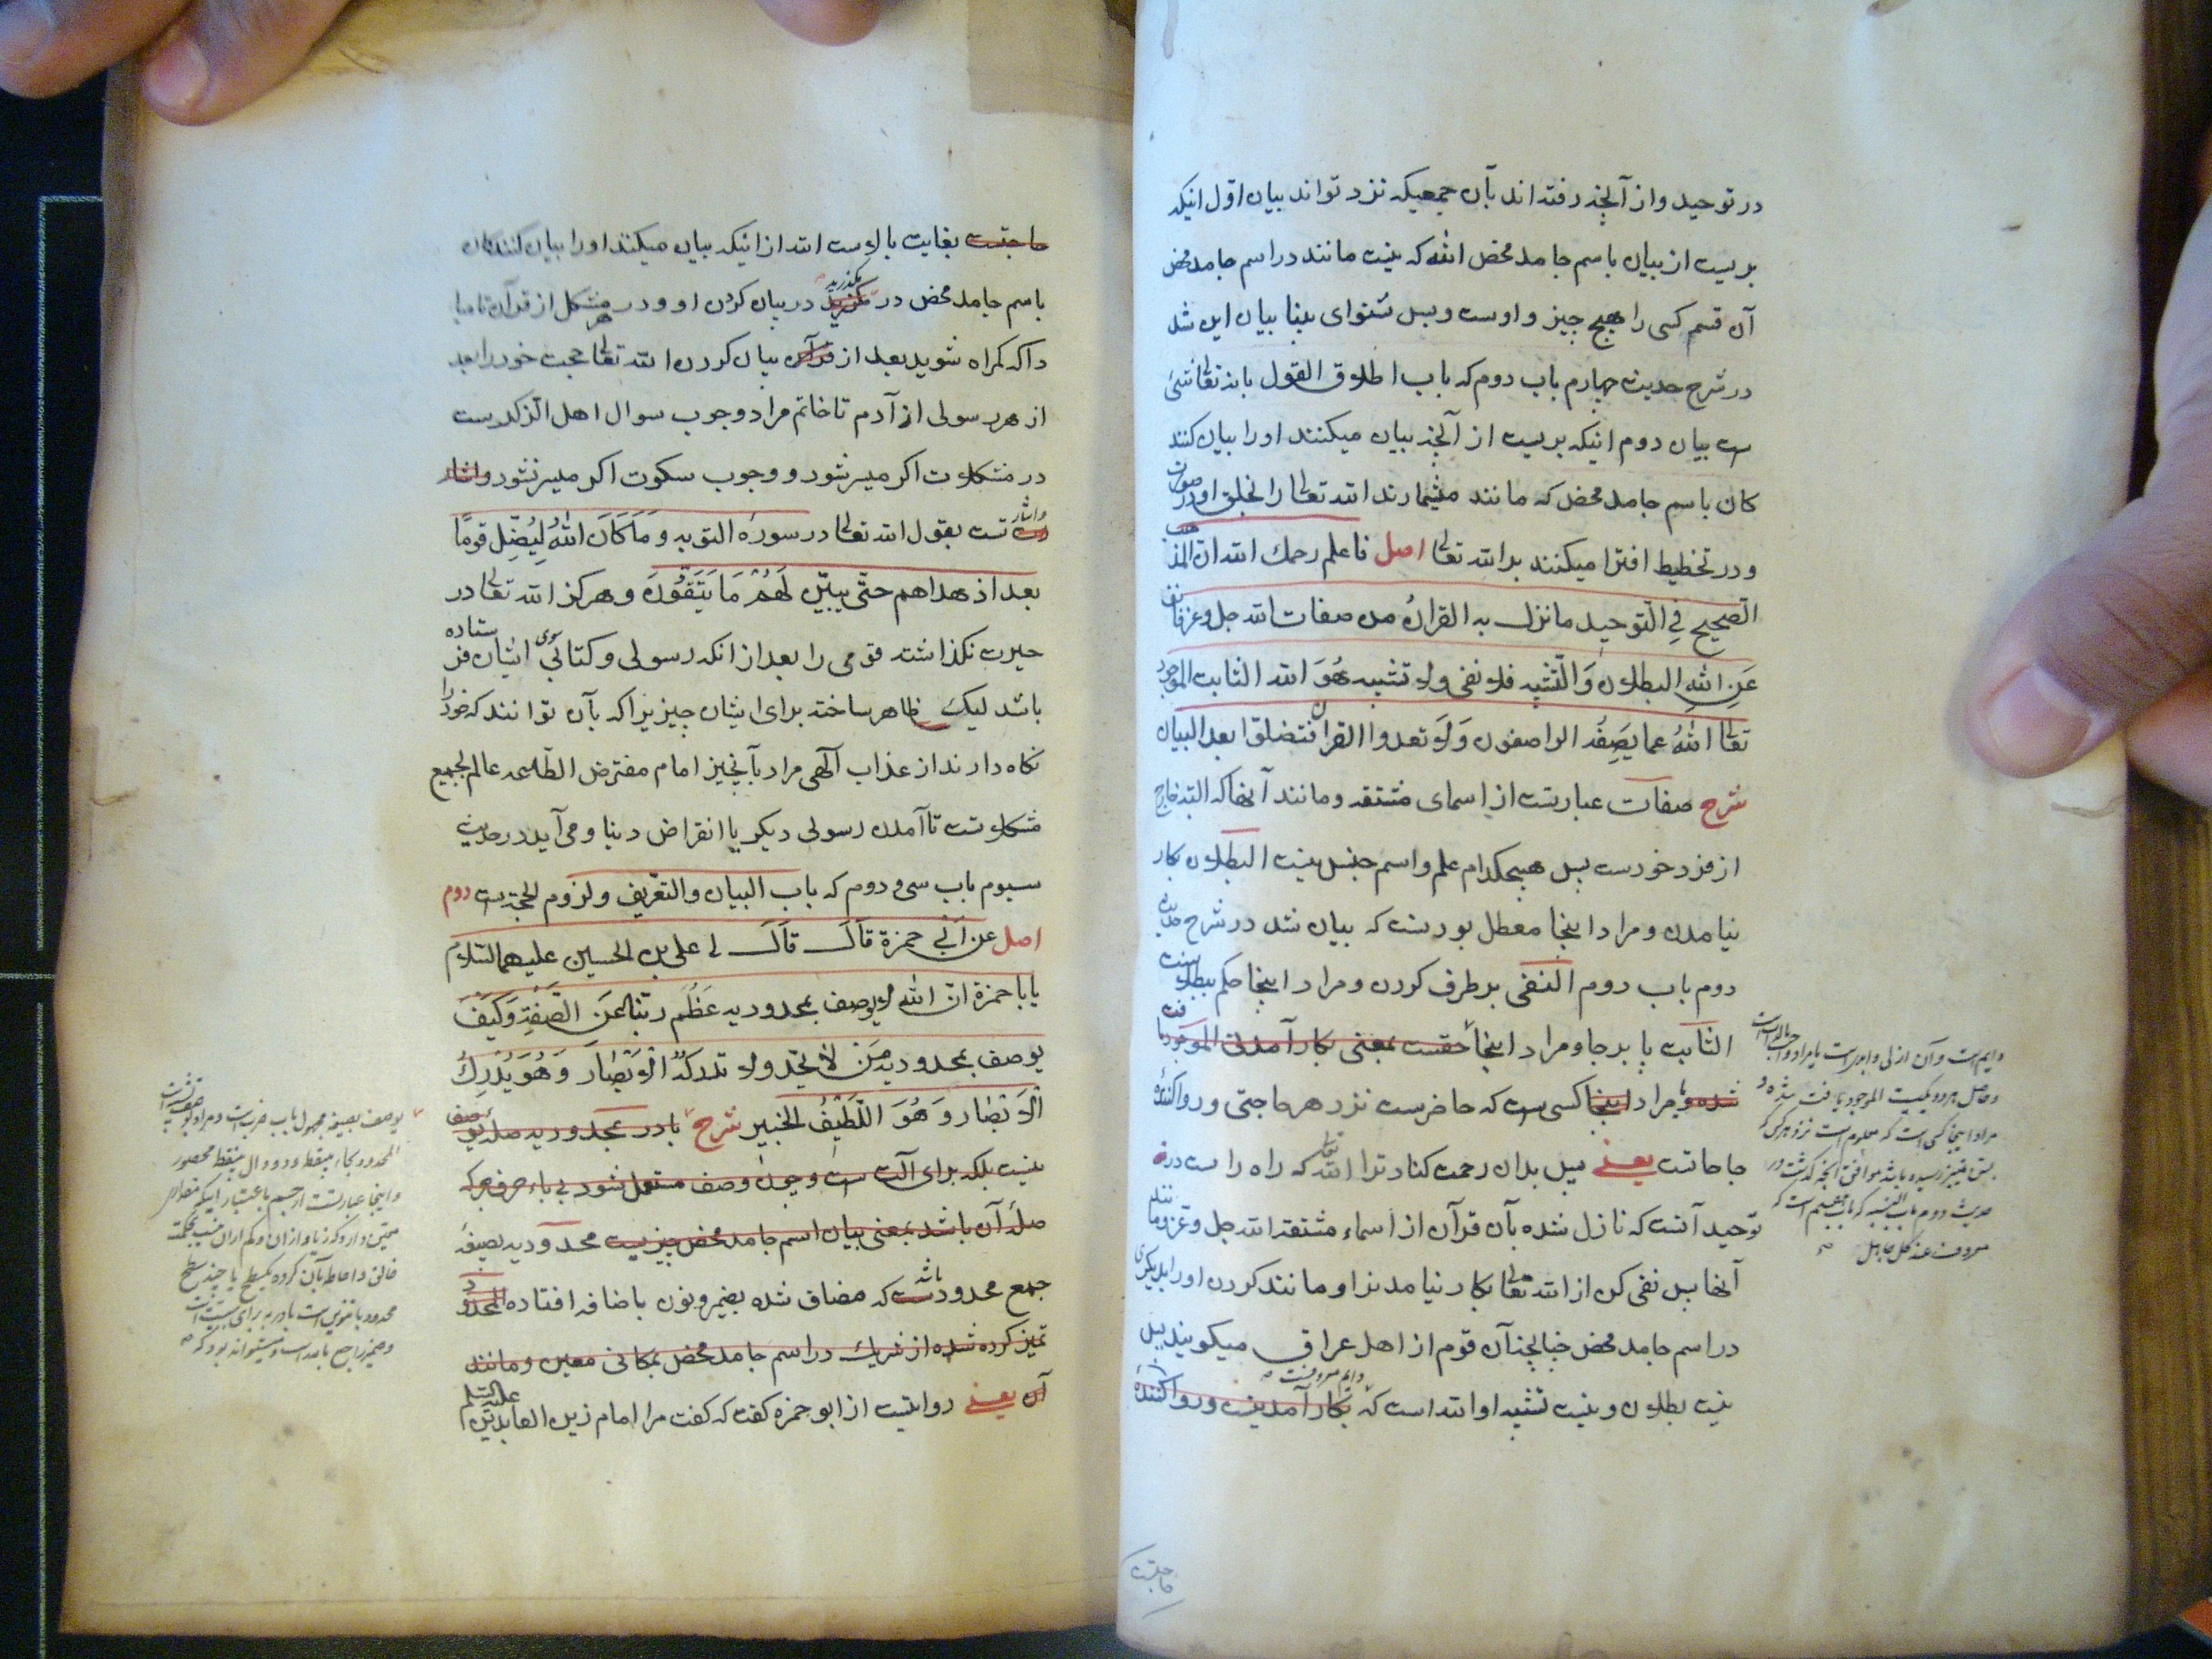 در توحید و از آنچه رفته اند بآن جمعیکه نزد تواند بیان اول اینکه
بریست از بیان باسم جامد محض الله که نیست مانند در اسم جامد محض
آن قسم کسی را هیچ چیز و اوست و بس شنوای بینا بیان این شد
در شرح حدیث چهارم باب دوم که باب اطلاق القول بانه تعالی شیء
ست بیان دوم اینکه بریست از آنچه بیان میکنند او را بیان کنند
کان باسم جامد محض که مانند میشمارند الله تعالی را بخلق او در صورت
و در تخطیط افترا میکنند بر الله تعالی اصل فاعلم رحمك الله ان المذهب
الصحیح فی التوحید ما نزل به القرانُ من صفات الله جل و عز فانف
عَنِ اللهِ البطلان وَالتشبیه فلا نفی ولا تشبیه هُوَ الله الثابت الموجود
تعالی اللهُ عما یَصِفُه الواصفون وَلَا تعدوا القران فتضلوا بعد البیان
شرح صفات عبارتست از اسمای مشتقه و مانند آنها که البته خارج
از فرد خودست پس هیچکدام علم و اسم جنس نیست البطلان بکار
نیامدن و مراد اینجا معطل بودنست که بیان شد در شرح حدیث
دوم باب دوم النفی بر طرف کردن و مراد اینجا حکم ببطلانست
الثابت پا بر جا و مراد اینجا حقست بمعنی بکار آمدنی الموجود یافت
شده و مراد اینجا کسی ست که حاضرست نزد هر حاجتی و روا کنندهٔ
حاجاتست یعنی پس بدان رحمت کناد ترا الله تعالی که راه راست در
توحید آنست که نازل شده بآن قرآن از اسماء مشتقه الله جل و عز و مانند
آنها پس نفی کن از الله تعالی بکار نیامدن او مانند کردن او را بدیگری
در اسم جامد محض چنانچه آن قوم از اهل عراق میگویند پس
نیست بطلان و نیست تشبیه او الله است که بکار آمدنیست و روا کنندهٔ
دایم است و آن ازلی و ابدی است یا مراد واجب بالذات است
و حاصل هر دو یکیست الموجود یافت شده و
مراد اینجا کسی است که معلوم است نزد هر کس که
بسن تمیز رسیده باشد موافق آنچه گذشت در
حدیث دوم باب النسبه که باب هفتم است که
معروف عند کل جاهل
حاجتست
حاجتست بغایت بالاست الله از اینکه بیان میکنند او را بیان کنندکان
باسم جامد محض در مگذرید در بیان کردن او و در هر مشکل از قرآن تا مبا
دا که کمراه شوید بعد از قرآن بیان کردن الله تعالی حجت خود را بعد
از هر رسولی از آدم تا خاتم مراد وجوب سوال اهل الذکرست
در مشکلات اکر میسر شود و وجوب سکوت اکر میسر نشود و اشار
تست بقول الله تعالی در سورهٔ التوبه و مَا كَانَ اللهُ لِيُضِلَّ قومًا
بعد اذ هداهم حتّی یبیّن لَهُمْ مَا يَتَّقُونَ و هرکز الله تعالی در
حیرت نکذاشته قومی را بعد از انکه رسولی و کتابی سوی ایشان فرستاده
باشد لیک ظاهر ساخته برای ایشان چیزیرا که بآن توانند که خود را
نکاه دارند از عذاب آلهی مراد بآنچیز امام مفترض الطاعه عالم بجمیع
مشکلاتست تا آمدن رسولی دیکر یا انقراض دنیا و می آید در حدیث
سیوم باب سی و دوم که باب البیان والتعریف و لزوم الحجة ست دوم
اصل عن أَبي حمزة قَالَ قَالَ لی علی بن الحسین علیهما السلام
یا با حمزة انّ الله لا یوصف بمحدودیه عَظُمَ ربّنا عَن الصّفة وَكَيْفَ
یوصف بمحدودیه مَنْ لَا يُحَدُّ ولا تدرکهُ الْأَبْصَارُ وَهُوَ يُدْرِكُ
الْأَبْصَارَ وَهُوَ اللَّطِيفُ الْخَبِير شرح با در بمحدودیه صلهٔ یوصف
نیست بلکه برای آلت ست و چون وصف مستعمل شود بی باء حرف جر که
صلهٔ آن باشد بمعنی بیان اسم جامد محض چیزیست محدودیه بصیغهٔ
جمع محدود باشد که مضاف شده بضمیر و نون باضافه افتاده المحدود
تمیز کرده شده از شریك در اسم جامد محض بمکانی معین و مانند
آن یعنی روایتست از ابو حمزه کفت که کفت مرا امام زین العابدین علیه السلم
یوصف بصیغهٔ مجهول باب ضرب است و مراد توصیف
المحدود بحاء بینقطه و دو دال بینقطه محصور